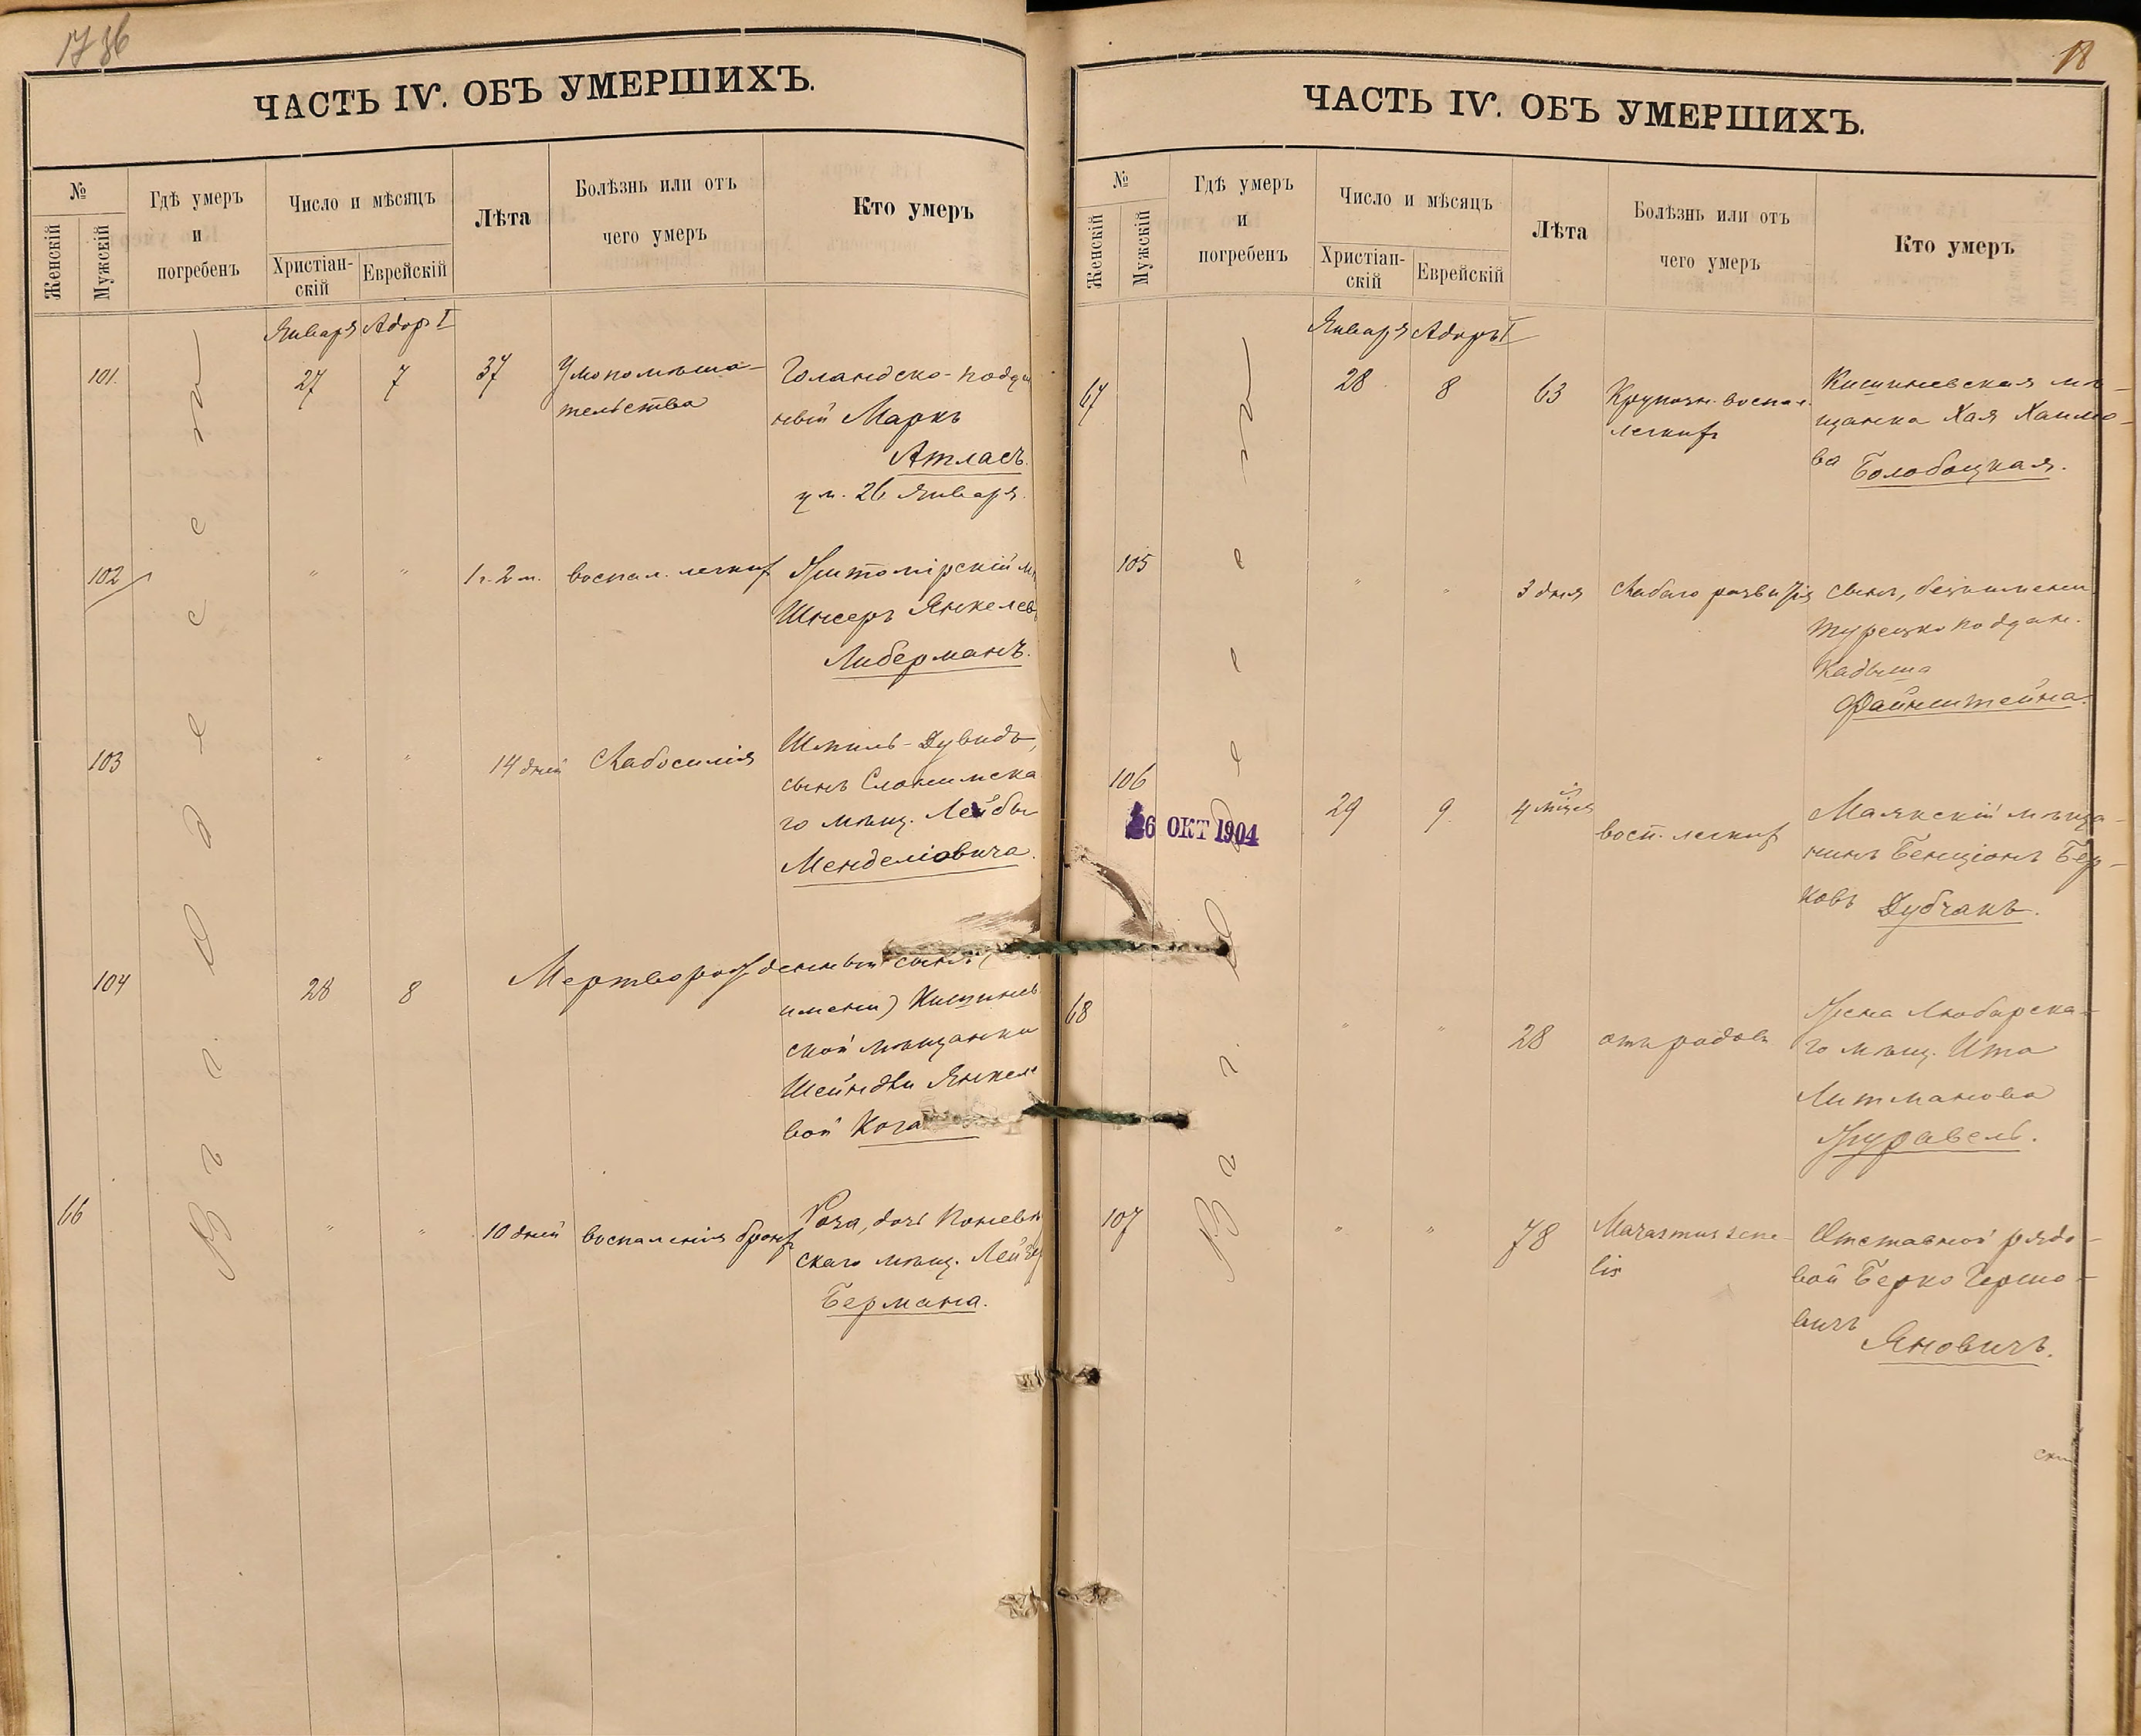 1736
ЧАСТЬ IV. ОБЪ УМЕРШИХЪ.
№
Женскій
Мужскій
Гдѣ умеръ
и
погребенъ
Число и мѣсяцъ
Христіан-
скій
Еврейскій
Лѣта
Болѣзнь или отъ
чего умеръ
Кто умеръ
Января Адоръ I
101. 27 7 37 Умопомѣша-
тельства
Голандско-подда
ный Маркъ
Атласъ.
ум. 26 Января.
102 " " 1 г. 2 м. воспал. легких
Житомірскій м
Шнееръ Янкелев
Либерманъ.
103 " " 14 дней Слабосилія
Шмиль-Дувидъ,
сынъ Слонимска
го мѣщ. Лейбы
Менделіовича.
104 28 8 Мертворожденный сынъ (
имени) Кишинев
ской мѣщанки
Шейндли Янкеле
вой Кога
66 " " 10 дней воспаленія бронх
Роза, дочь Поневѣж
скаго мѣщ. Лей
Бермана.
В г. Одессѣ
18
ЧАСТЬ IV. ОБЪ УМЕРШИХЪ.
№
Женскій
Мужскій
Гдѣ умеръ
и
погребенъ
Число и мѣсяцъ
Христіан-
скій
Еврейскій
Лѣта
Болѣзнь или отъ
чего умеръ
Кто умеръ
Января Адоръ I
67 28 8 63 Крупозн. воспал.
легких
Кишиневская мѣ-
щанка Хая Хаимо-
ва Болобоцкая.
105 " " 3 дня Слабаго развитія
сынъ, безъ имени
турецко поддан.
Кадыша
Файнштейна.
106 29 9 4 мѣсяц восп. легких
26 ОКТ 1904
Маякскій мѣща-
нинъ Бенціонъ Бер-
ковъ Дубчакъ.
68 " " 28 отъ родовъ
Жена Любарска-
го мѣщ. Ита
Литманова
Журавель.
107 " " 78 Marasmus sene-
lis
Отставной рядо-
вой Берко Гершо-
вичъ
Яновичъ.